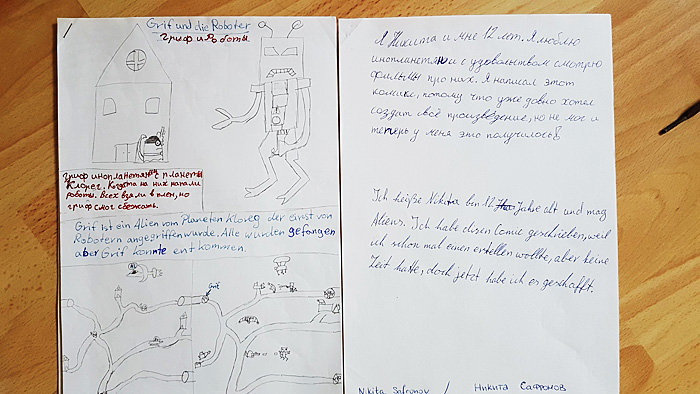 Grif und die Roboter
Гриф и Роботы
Гриф инопланетянец с планеты
Клорег. Когда-то на них напали
роботы. Всех взяли в плен, но
гриф смог сбежать.
Grif ist ein Alien vom Planeten Kloreg der einst von
Robotern angegriffen wurde. Alle wurden gefangen
aber Grif konnte entkommen.
Grif
Я Никита и мне 12 лет. Я люблю
инопланетян и с удовольством смотрю
фильмы про них. Я написал этот
комикс, потому что уже давно хотел
создат своё произведение, но не мог и
теперь у меня это получилось!
Ich heiße Nikita bin 12 Jahre alt und mag
Aliens. Ich habe diesen Comic geschrieben, weil
ich schon mal einen erstellen wollte, aber keine
Zeit hatte, doch jetzt habe ich es geschafft.
Nikita Safronov / Никита Сафронов